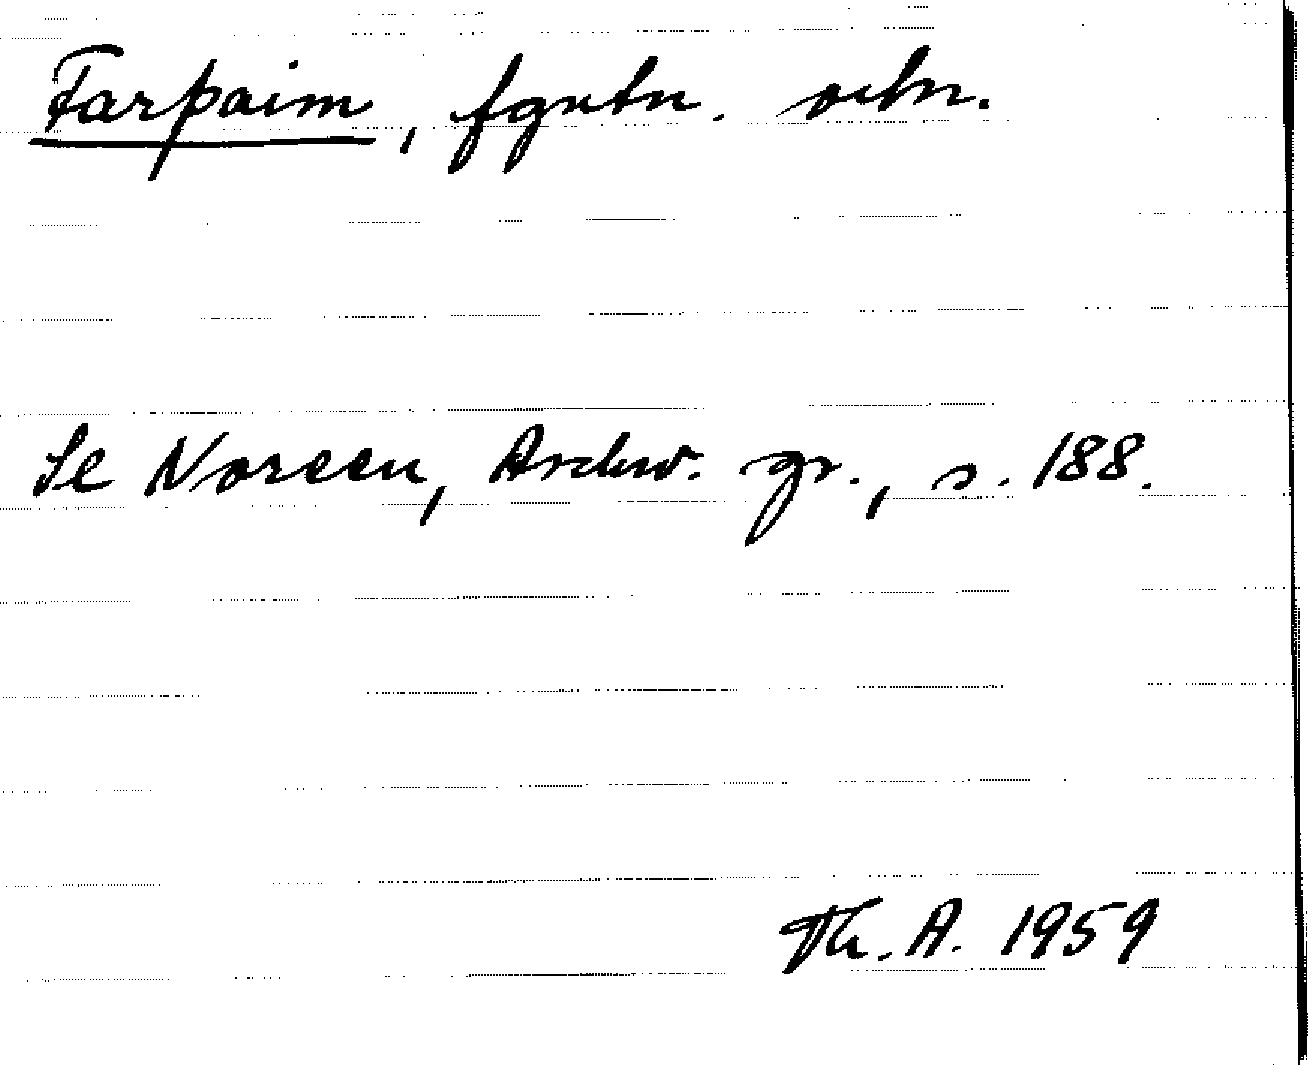 Farþaim, fgutn. ortn.
Se Noreen, Aschw. gr., s. 188.
Th. A. 1959